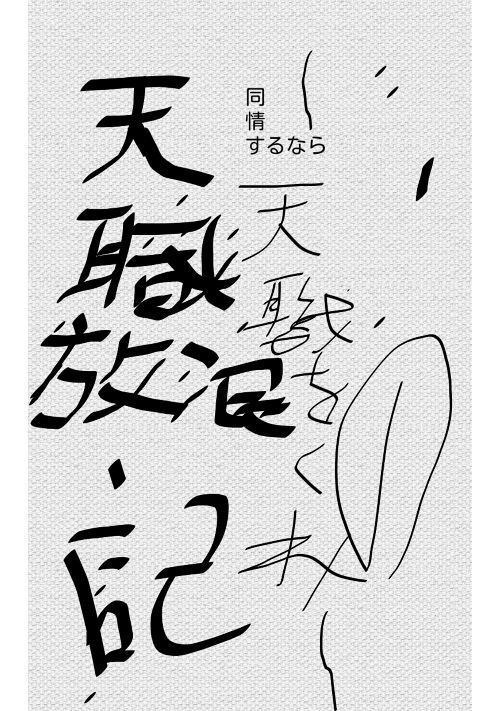 同
情
するなら
天職をくれ
天職放浪記